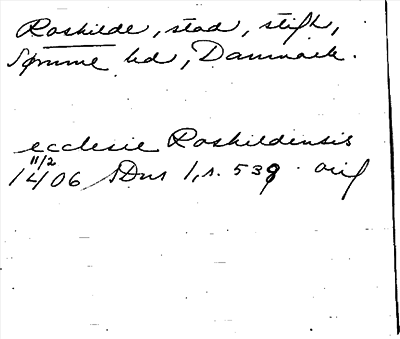 Roskilde, stad, stift,
Sømme hd, Danmark.
ecclesie Roskildensis
11/2
1406 SDns 1, s. 539 orig